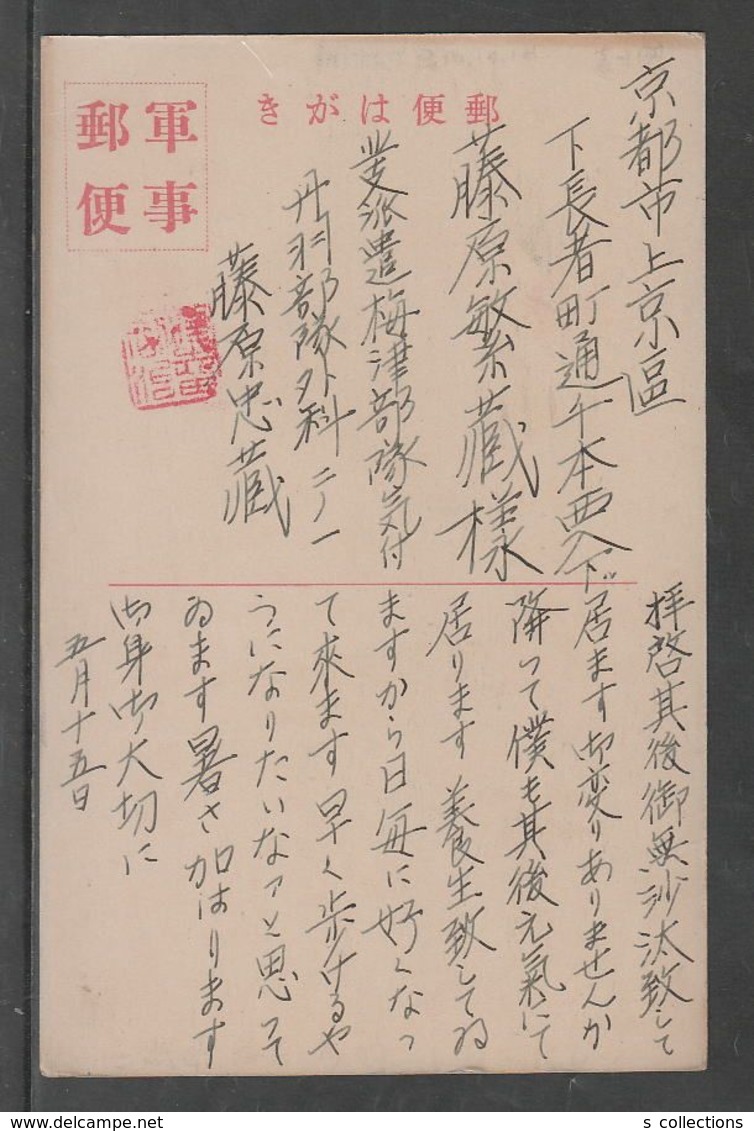 郵便はがき
軍事
郵便
京都市上京區
下長者町通千本西入下ル
藤原敏繁蔵様
派遣梅津部隊気付
丹羽部隊外科二ノ一
藤原忠蔵
拝啓其後御無沙汰致して
居ます御変りありませんか
降つて僕も其後元氣にて
居ります養生致してゐ
ますから日毎に好くなつ
て來ます早く歩けるや
うになりたいなァと思つて
ゐます暑さ加はります
御身御大切に
五月十五日
s collections